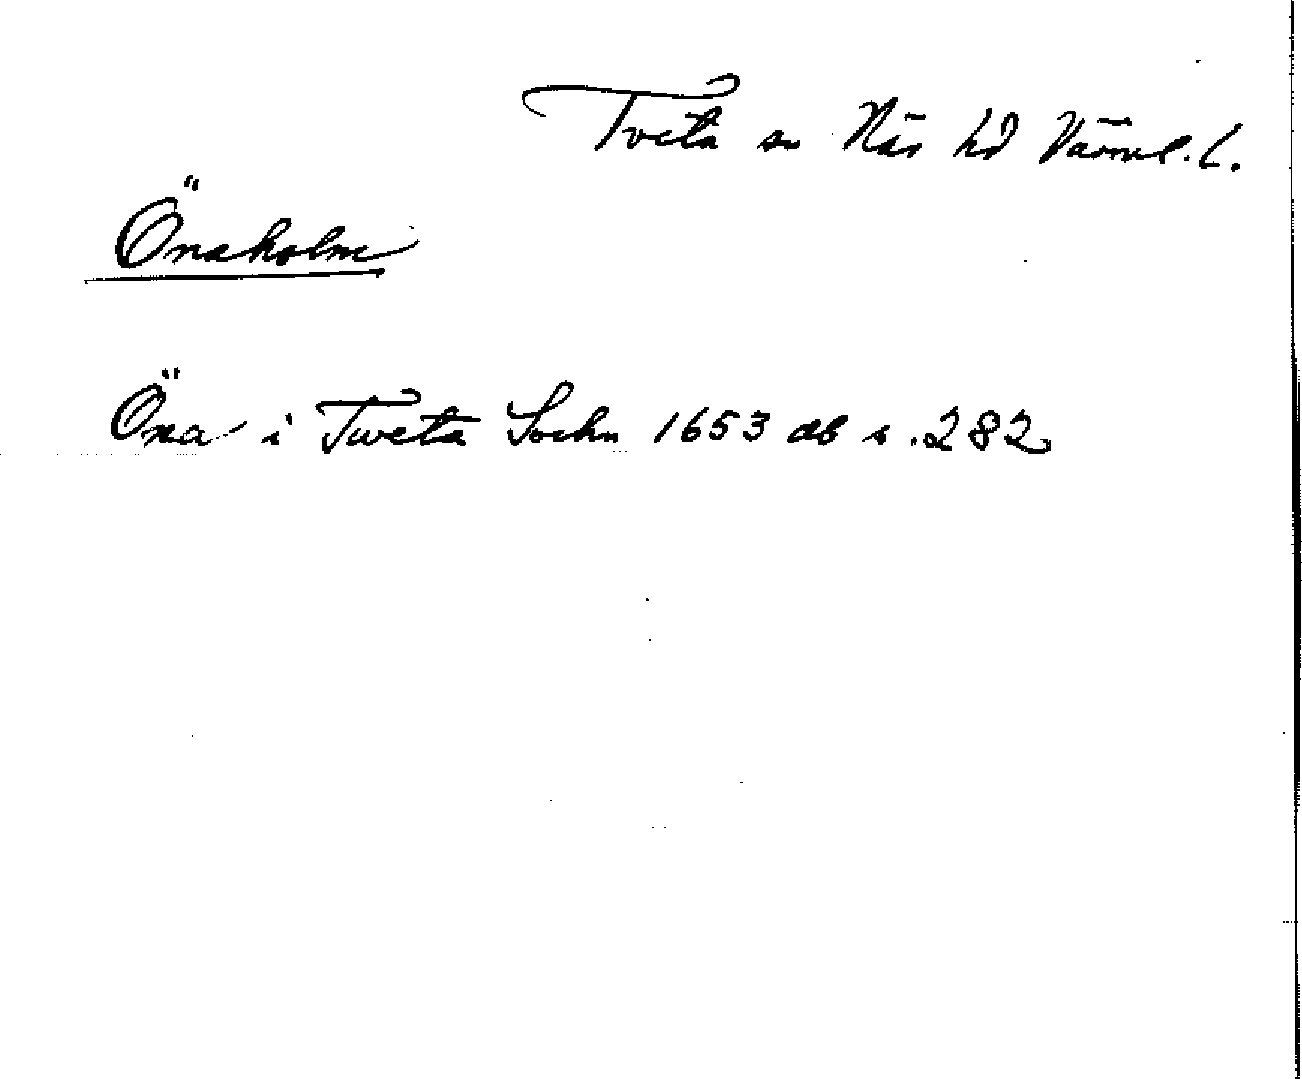 Tveta sn Näs hd Värml. l.
Önaholm
Öna i Tweta Sochn 1653 db s. 282